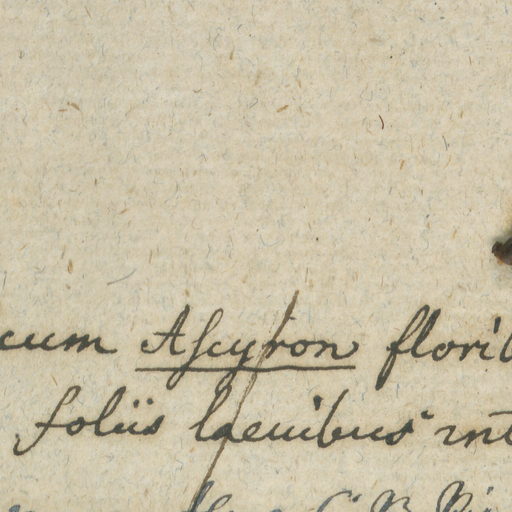 cum Ascyron florib
foliis laevibus int
C. B. Pi